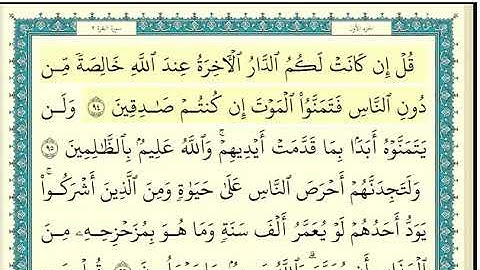 سورة البقرة ٢
الجزء الأول
قُلْ إِن كَانَتْ لَكُمُ ٱلدَّارُ ٱلْءَاخِرَةُ عِندَ ٱللَّهِ خَالِصَةً مِّن
دُونِ ٱلنَّاسِ فَتَمَنَّوُا۟ ٱلْمَوْتَ إِن كُنتُمْ صَـٰدِقِينَ ٩٤ وَلَن
يَتَمَنَّوْهُ أَبَدًۢا بِمَا قَدَّمَتْ أَيْدِيهِمْ ۗ وَٱللَّهُ عَلِيمٌۢ بِٱلظَّـٰلِمِينَ ٩٥
وَلَتَجِدَنَّهُمْ أَحْرَصَ ٱلنَّاسِ عَلَىٰ حَيَوٰةٍ وَمِنَ ٱلَّذِينَ أَشْرَكُوا۟ ۚ
يَوَدُّ أَحَدُهُمْ لَوْ يُعَمَّرُ أَلْفَ سَنَةٍ وَمَا هُوَ بِمُزَحْزِحِهِۦ مِنَ